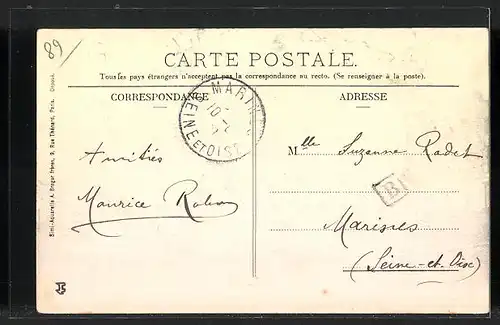 89
CARTE POSTALE.
Tous les pays étrangers n'acceptent pas la correspondance au recto. (Se renseigner à la poste).
CORRESPONDANCE
ADRESSE
MARINES
SEINE ET OISE
Amitiés
Maurice
Mlle Suzanne Radet
B
Marines
(Seine-et-Oise)
Simili-Aquarelle A. Breger frères, 9, Rue Thénard, Paris. Déposé.